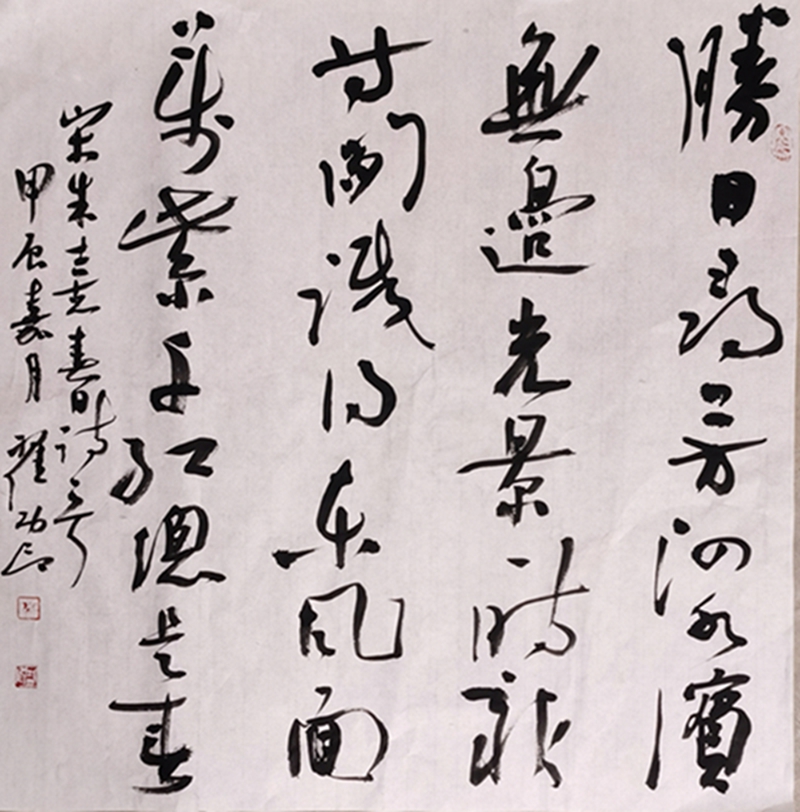 勝日尋芳泗水濱
無邊光景一時新
等閒識得東風面
萬紫千紅總是春
宋朱熹春日詩
甲辰嘉月